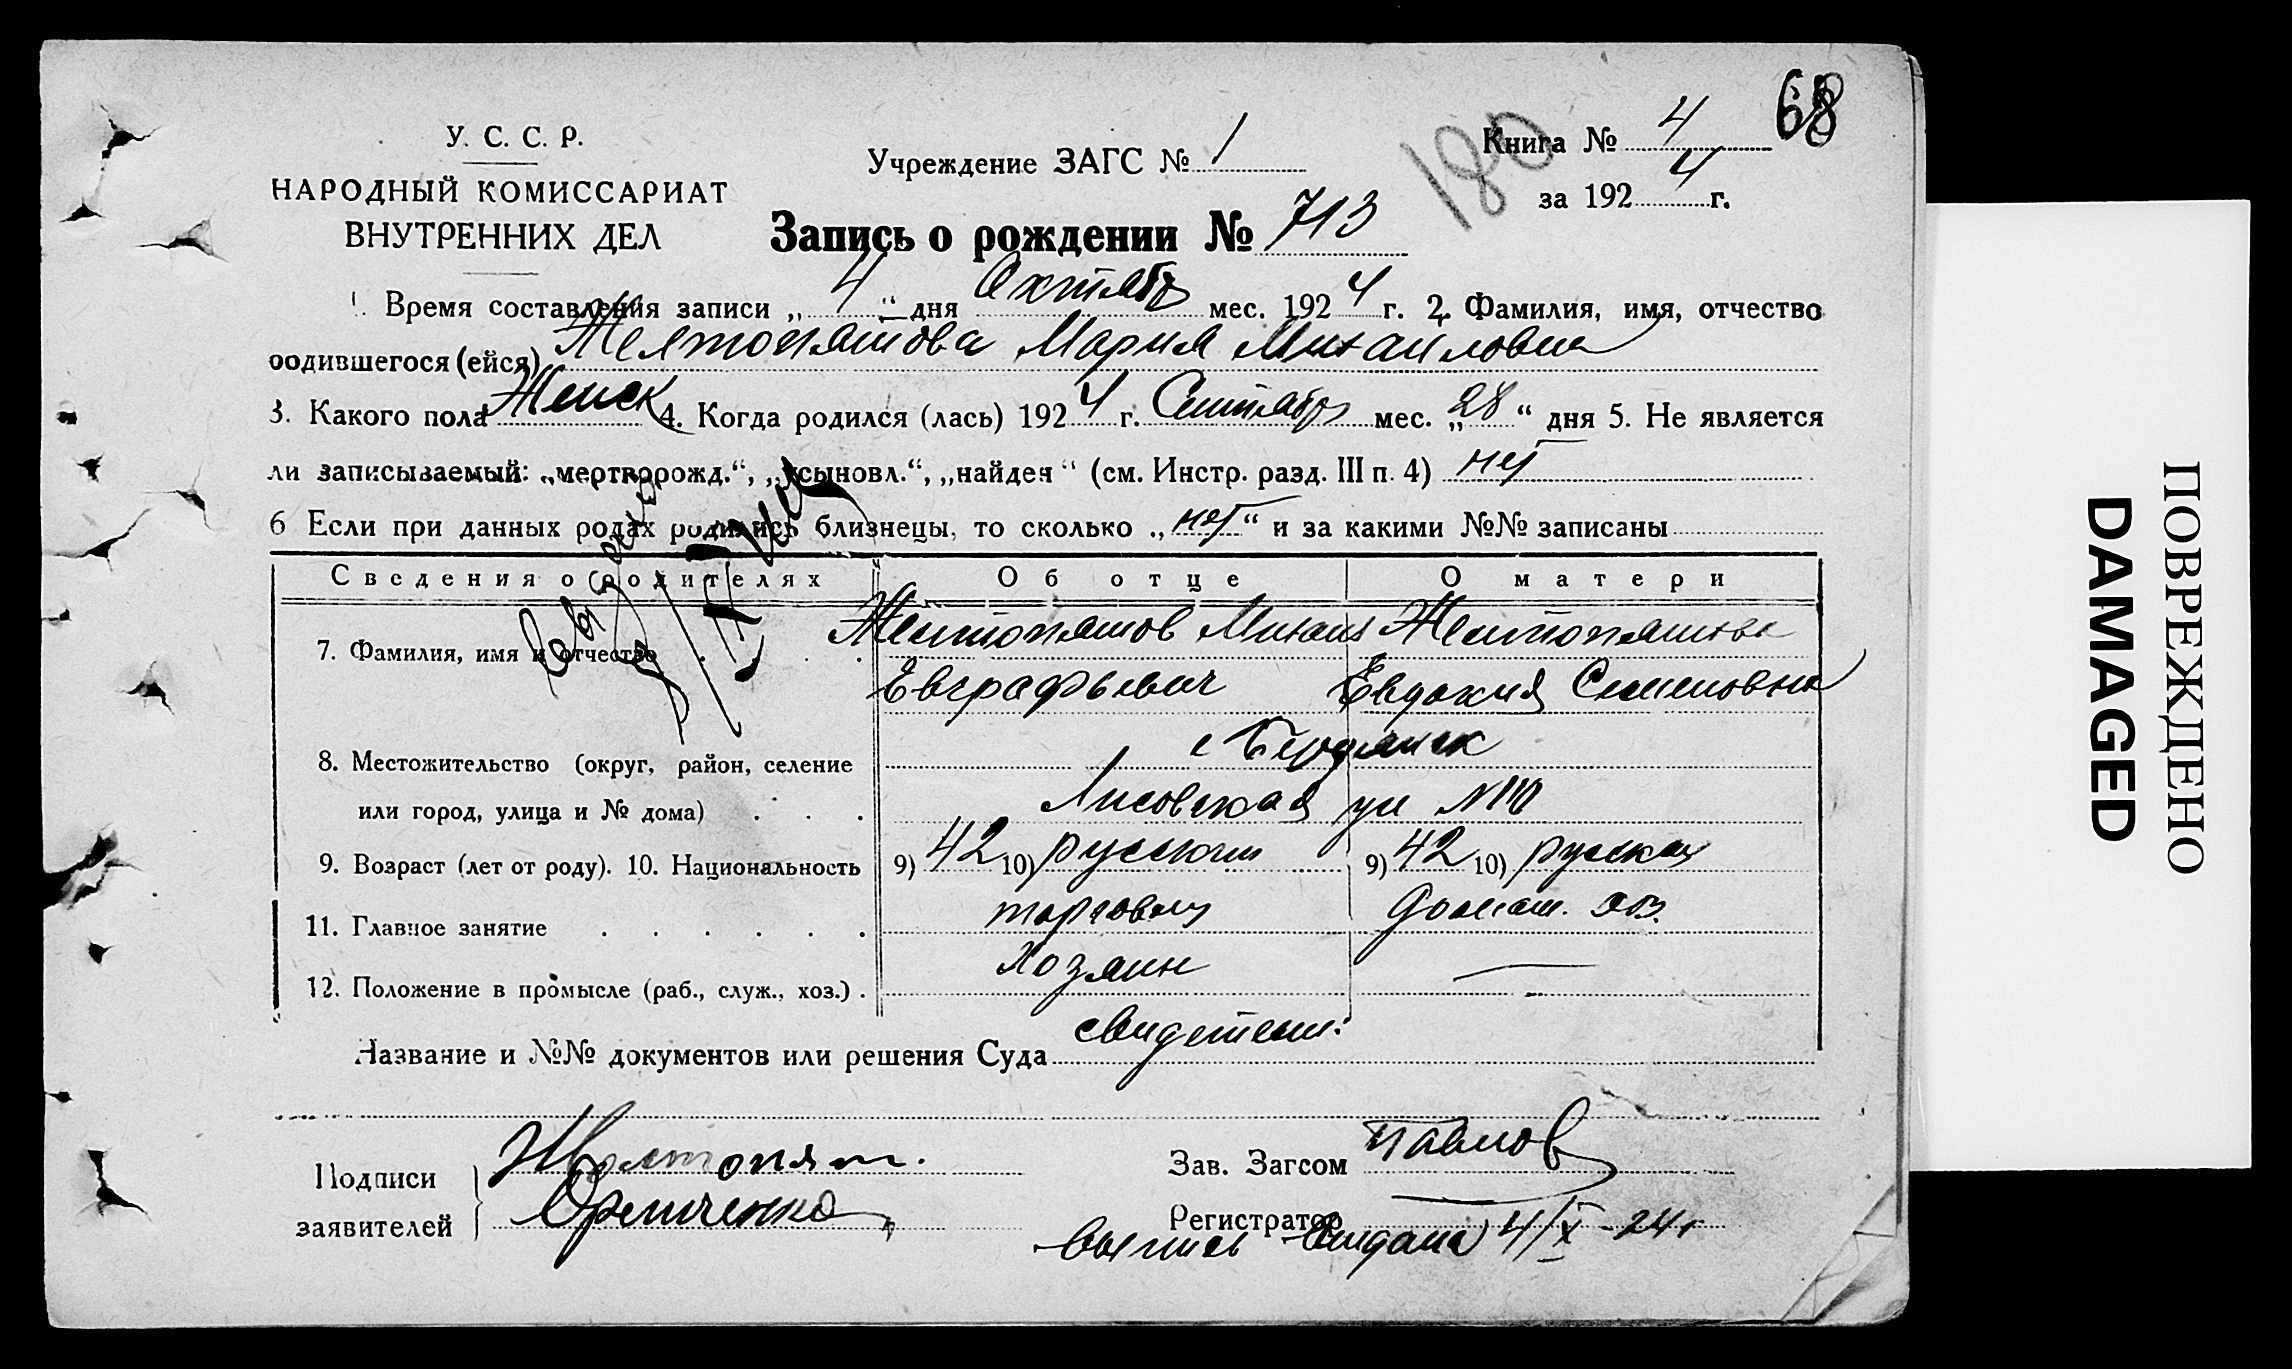 68
У. С. С. Р.
НАРОДНЫЙ КОМИССАРИАТ
ВНУТРЕННИХ ДЕЛ
Учреждение ЗАГС № 1
180
Книга № 4
за 1924 г.
Запись о рождении № 713
1. Время составления записи „4“ дня Октябр мес. 1924 г. 2. Фамилия, имя, отчество
родившегося (ейся) Желтопятова Мария Михаиловна
3. Какого пола Женск 4. Когда родился (лась) 1924 г. Сентябр мес. „28“ дня 5. Не является
ли записываемый: „мертворожд.“, „усыновл.“, „найден“ (см. Инстр. разд. III п. 4) нет
6 Если при данных родах родились близнецы, то сколько „нет“ и за какими №№ записаны
Сведения о родителях Об отце О матери
7. Фамилия, имя и отчество Желтопятов Михаил Желтопятова
Евграфьевич Евдокия Семеновна
8. Местожительство (округ, район, селение г Бердянск
или город, улица и № дома) Лисовская ул №
9. Возраст (лет от роду). 10. Национальность 9) 42 10) русский 9) 42 10) русская
11. Главное занятие торговец домаш. хоз.
12. Положение в промысле (раб., служ., хоз.) Хозяин —
Название и №№ документов или решения Суда свидетели:
Подписи
заявителей
Желтопят.
Зав. Загсом Павлов
Регистратор
Выпись выдана 4/X-24г
ПОВРЕЖДЕНО
DAMAGED